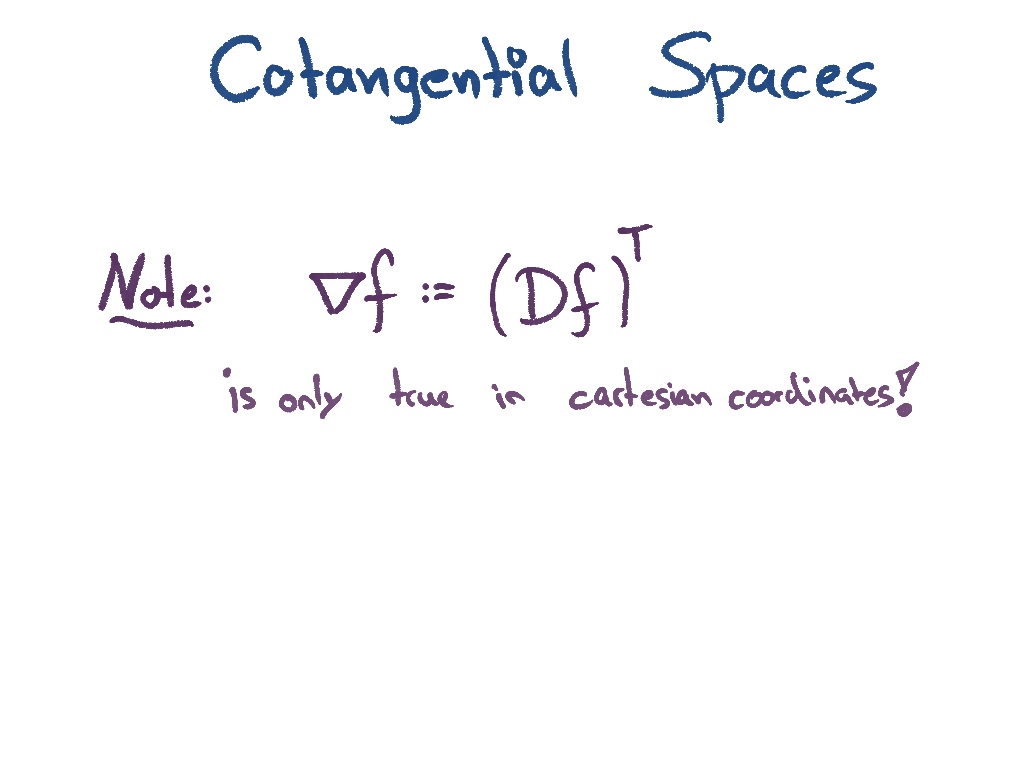 Cotangential Spaces
Note: ∇f := (Df)ᵀ
is only true in cartesian coordinates!